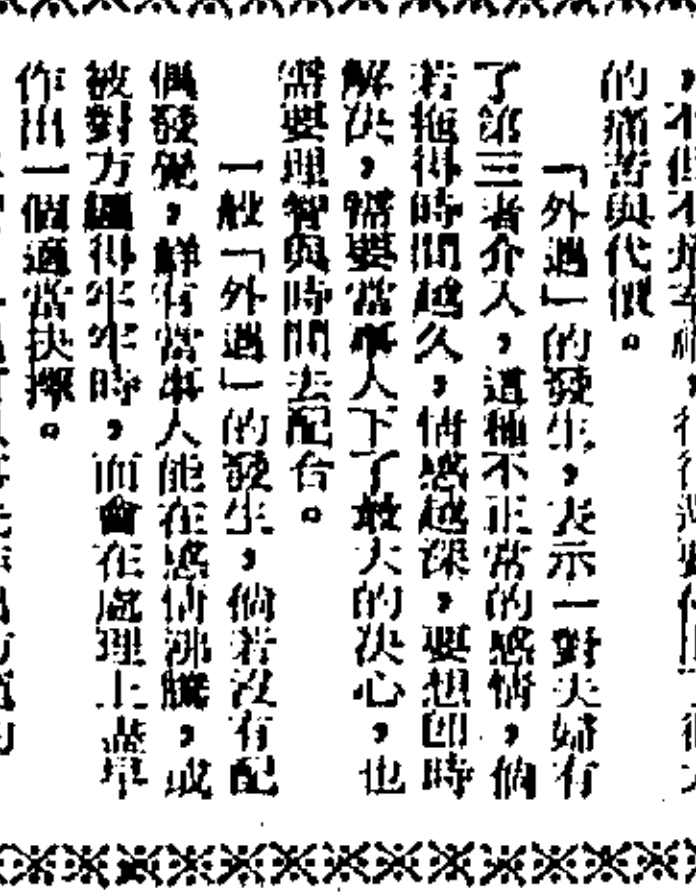 ，不但不
的痛苦與代價。
「外遇」的發生，表示一對夫婦有
了第三者介入，這種不正常的感情，倘
若拖得時間越久，情感越深，要想即時
解決，需要當事人下了最大的決心，也
需要理智與時間去配合。
一般「外遇」的發生，倘若沒有配
偶發覺，鮮有當事人能在感情沸騰，或
被對方纏得牢牢時，而會在處理上盡早
作出一個適當抉擇。